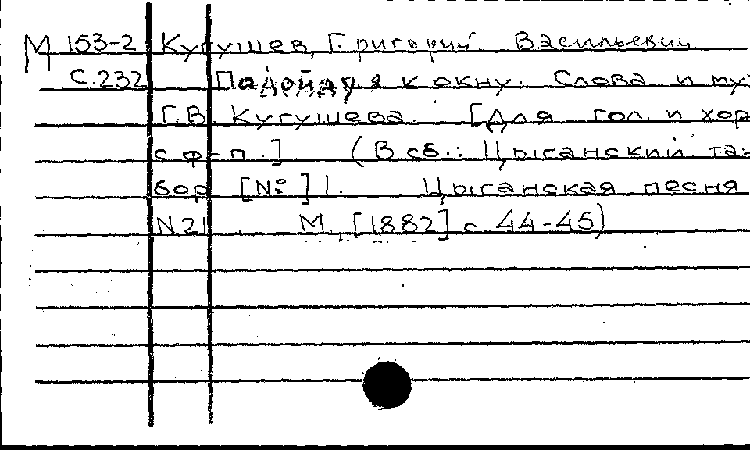 М 153-2 Кугушев, Григорий Васильевич
С.232 Подойду я к окну. Слова и му-
Г.В. Кугушева. [Для гол. и хор
с ф-п.] (В сб.: Цыганский та-
бор [№] 1. Цыганская песня
N 21. М., [1882] с. 44-45)